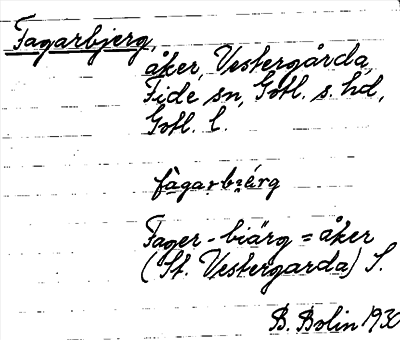 Fagarbjerg,
åker, Vestergårda,
Fide sn, Gotl. s. hd,
Gotl. l.
fàgarbɪérg
Fager-biärg = åker
(St. Vestergarda) S.
B. Bolin 1930